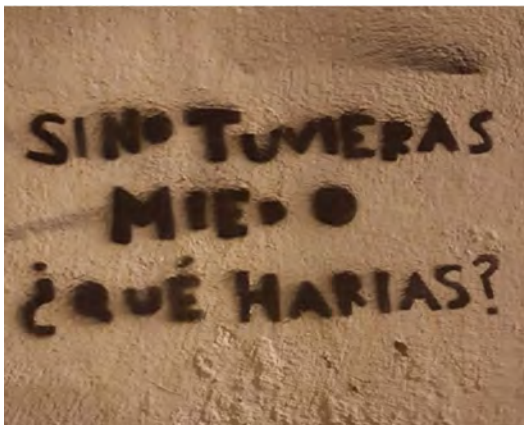 SI NO TUVIERAS
MIEDO
¿QUÉ HARIAS?